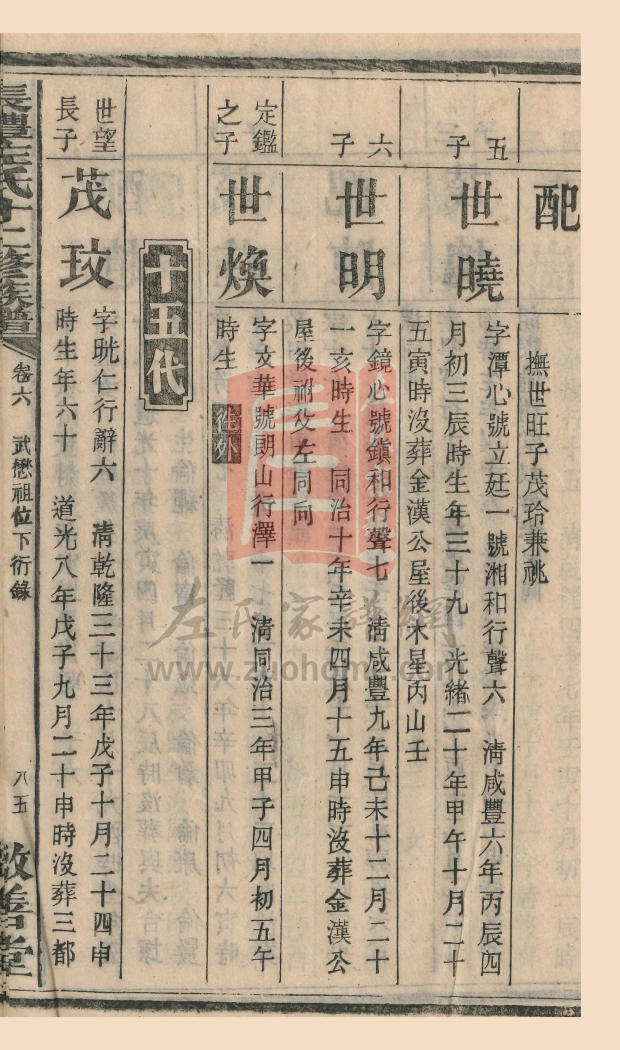 配
撫世旺子茂玲兼祧
五子
世曉
字潭心號立廷一號湘和行聲六 清咸豐六年丙辰四
月初三辰時生年三十九 光緒二十年甲午十月二十
五寅時沒葬金漢公屋後木星丙山壬
六子
世明
字鏡心號鎮和行聲七 清咸豐九年己未十二月二十
一亥時生 同治十年辛未四月十五申時沒葬金漢公
屋後祔父左同向
定鑑之子
世煥
字文華號朗山行澤一 清同治三年甲子四月初五午
時生 往外
十五代
世望長子
茂玟
字晄仁行辭六 清乾隆三十三年戊子十月二十四申
時生年六十 道光八年戊子九月二十申時沒葬三都
長澧左氏十二修族譜
卷六 武懋祖位下衍錄
八五
敬善堂
左氏家譜網
www.zuohome.com